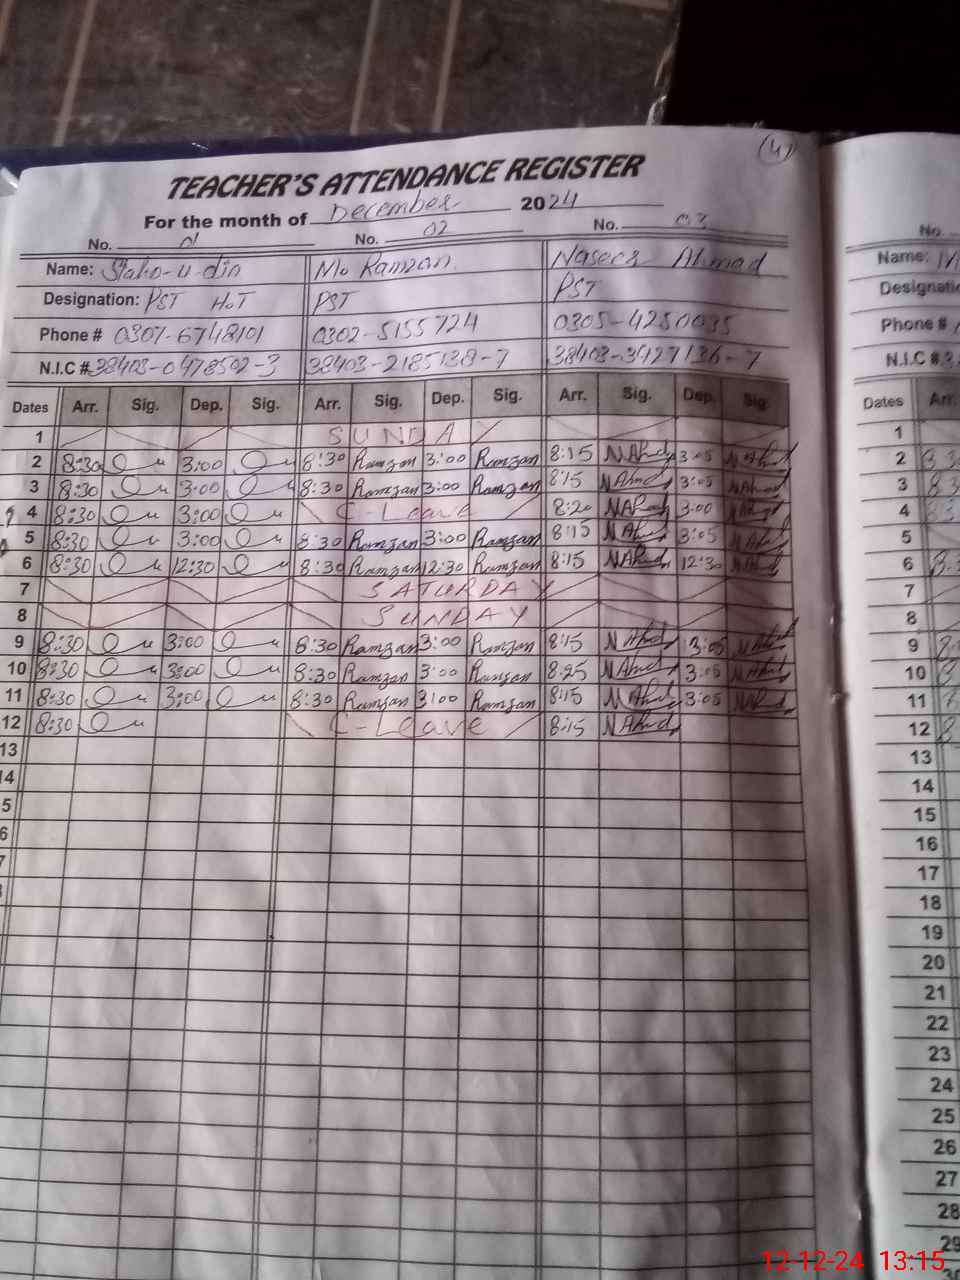 (4)
TEACHER'S ATTENDANCE REGISTER
For the month of December 2024
No. 01 No. 02 No. 03
Name: Mo Ramzan. Naseer Ahmad
Designation: PST HoT PST PST
Phone # 0307-6748101 0302-5155724 0305-4250035
N.I.C # 38403-0478502-3 38403-2185138-7 38403-3427136-7
Dates Arr. Sig. Dep. Sig. Arr. Sig. Dep. Sig. Arr. Sig. Dep. Sig.
1 SUNDAY
2 8:30 3:00 8:30 Ramzan 3:00 Ramzan 8:15 NAhmd 3:05 NAhmd
3 8:30 3:00 8:30 Ramzan 3:00 Ramzan 8:15 NAhmd 3:05 NAhmd
4 8:30 3:00 C-Leave 8:20 NAhmd 3:00 NAhmd
5 8:30 3:00 8:30 Ramzan 3:00 Ramzan 8:15 NAhmd 3:05 NAhmd
6 8:30 12:30 8:30 Ramzan 12:30 Ramzan 8:15 NAhmd 12:30 NAhmd
7 SATURDAY
8 SUNDAY
9 8:30 3:00 8:30 Ramzan 3:00 Ramzan 8:15 NAhmd 3:05 NAhmd
10 8:30 3:00 8:30 Ramzan 3:00 Ramzan 8:25 NAhmd 3:05 NAhmd
11 8:30 3:00 8:30 Ramzan 3:00 Ramzan 8:15 NAhmd 3:05 NAhmd
12 8:30 C-Leave 8:15 NAhmd
13
14
5
6
7
No.
Name:
Designati
Phone #
N.I.C #
Dates Arr.
1
2
3
4
5
6
7
8
9
10
11
12
13
14
15
16
17
18
19
20
21
22
23
24
25
26
27
28
29
30
12-12-24 13:15